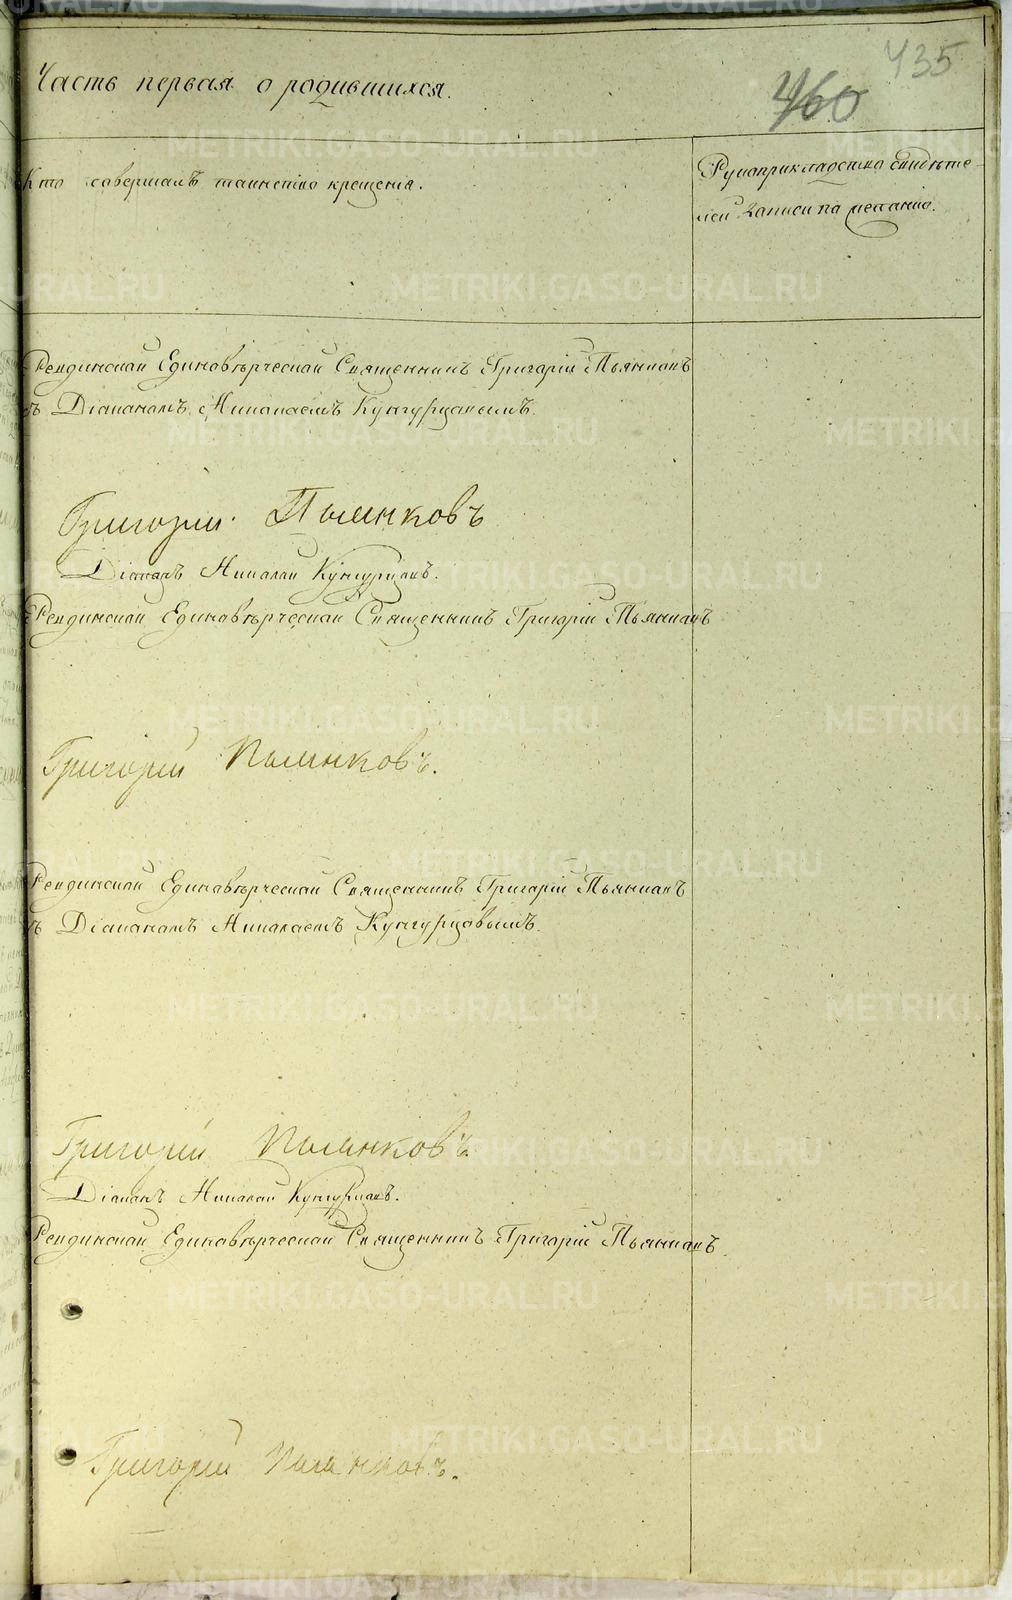 435
460
Часть первая о родившихся.
Кто совершалъ таинство крещенiя.
Рукоприкладство свидѣте-
лей записи по желанiю.
Ревдинскай Единовѣрческай Священникъ Григорiй Пьянковъ
съ Дiакономъ Николаемъ Кунгурцовымъ.
Григорiй Пьянковъ
Дiаконъ Николай Кунгурцовъ.
Ревдинскай Единовѣрческай Священникъ Григорiй Пьянковъ
Григорiй Пьянковъ.
Ревдинскай Единовѣрческай Священникъ Григорiй Пьянковъ
съ Дiакономъ Николаемъ Кунгурцовымъ.
Григорiй Пьянковъ
Дiаконъ Николай Кунгурцовъ.
Ревдинскай Единовѣрческай Священникъ Григорiй Пьянковъ
Григорiй Пьянковъ.
METRIKI.GASO-URAL.RU